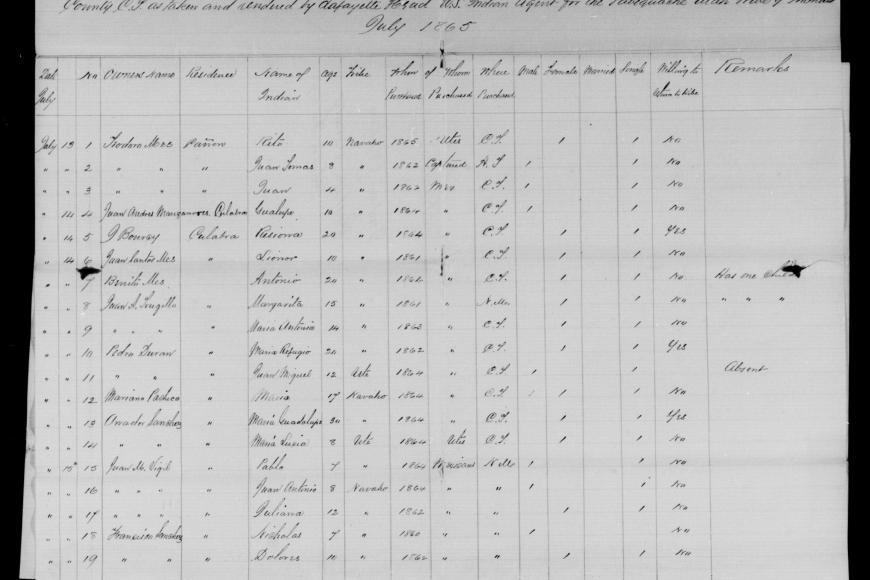 County, C.T. as taken and rendered by Lafayette Head U.S. Indian Agent for the
July 1865
Date July No Owners Name Residence Name of Indian Age Tribe When Purchased of Whom Purchased Where Purchased Male Female Married Single Willing to return to tribe Remarks
July 13 1 Teodoro Mes Cañon Rito 10 Navaho 1865 Utes C.T. 1 1 No
" " 2 " " " Juan Tomas 8 " 1862 Captured N.T. 1 1 No
" " 3 " " " Juan 4 " 1862 Mes C.T. 1 1 No
" 14 4 Juan Andres Manzanares Culabra Gualupe 10 " 1864 " C.T. 1 1 No
" 14 5 J Bourey Culabra 20 " 1864 " C.T. 1 1 Yes
" 14 6 Juan Santos Mes " Lionor 10 " 1861 " C.T. 1 1 No
" " 7 Benito Mes " Antonio 20 " 1862 " C.T. 1 1 No Has one Child
" " 8 Juan A. Trugillo " Margarita 15 " 1861 " N.Mex 1 1 No " " "
" " 9 " " " Maria Antonia 14 " 1862 " C.T. 1 1 No
" " 10 Pedro Duran " Maria Refugio 20 " 1862 " C.T. 1 1 Yes
" " 11 " " " Juan Miguel 12 Ute 1864 " C.T. 1 1 Absent
" " 12 Mariano Pacheco " Maria 17 Navaho 1864 " C.T. 1 1 No
" " 13 Amador Sanchez " Maria Guadalupe 30 " 1864 " C.T. 1 1 Yes
" " 14 " " " Maria Lucia 8 Ute 1864 Utes C.T. 1 1 No
" 15 15 Juan M. Vigil " Pablo 7 " 1864 Mexicans N.Mex 1 1 No
" " 16 " " " " Juan Antonio 8 Navaho 1864 " " 1 1 No
" " 17 " " " " Juliana 12 " 1862 " " 1 1 No
" " 18 Francisco Sanchez " Nicholas 7 " 1860 " " 1 No
" " 19 " " " Dolores 10 " 1862 " " 1 1 No